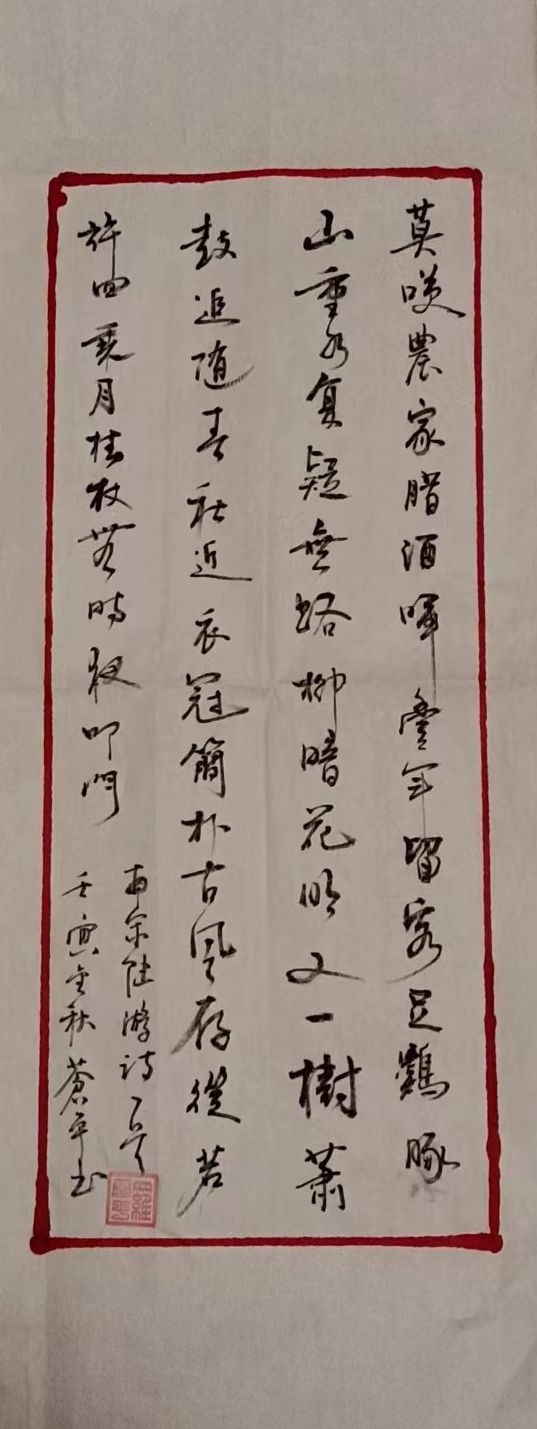 莫咲農家腊酒渾豊年留客足鷄豚
山重水复疑無路柳暗花明又一樹蕭
鼓追随春社近衣冠簡朴古風存從若
許四乘月拄杖無時夜叩門
南宋陆游诗一首
壬寅金秋蒼平书